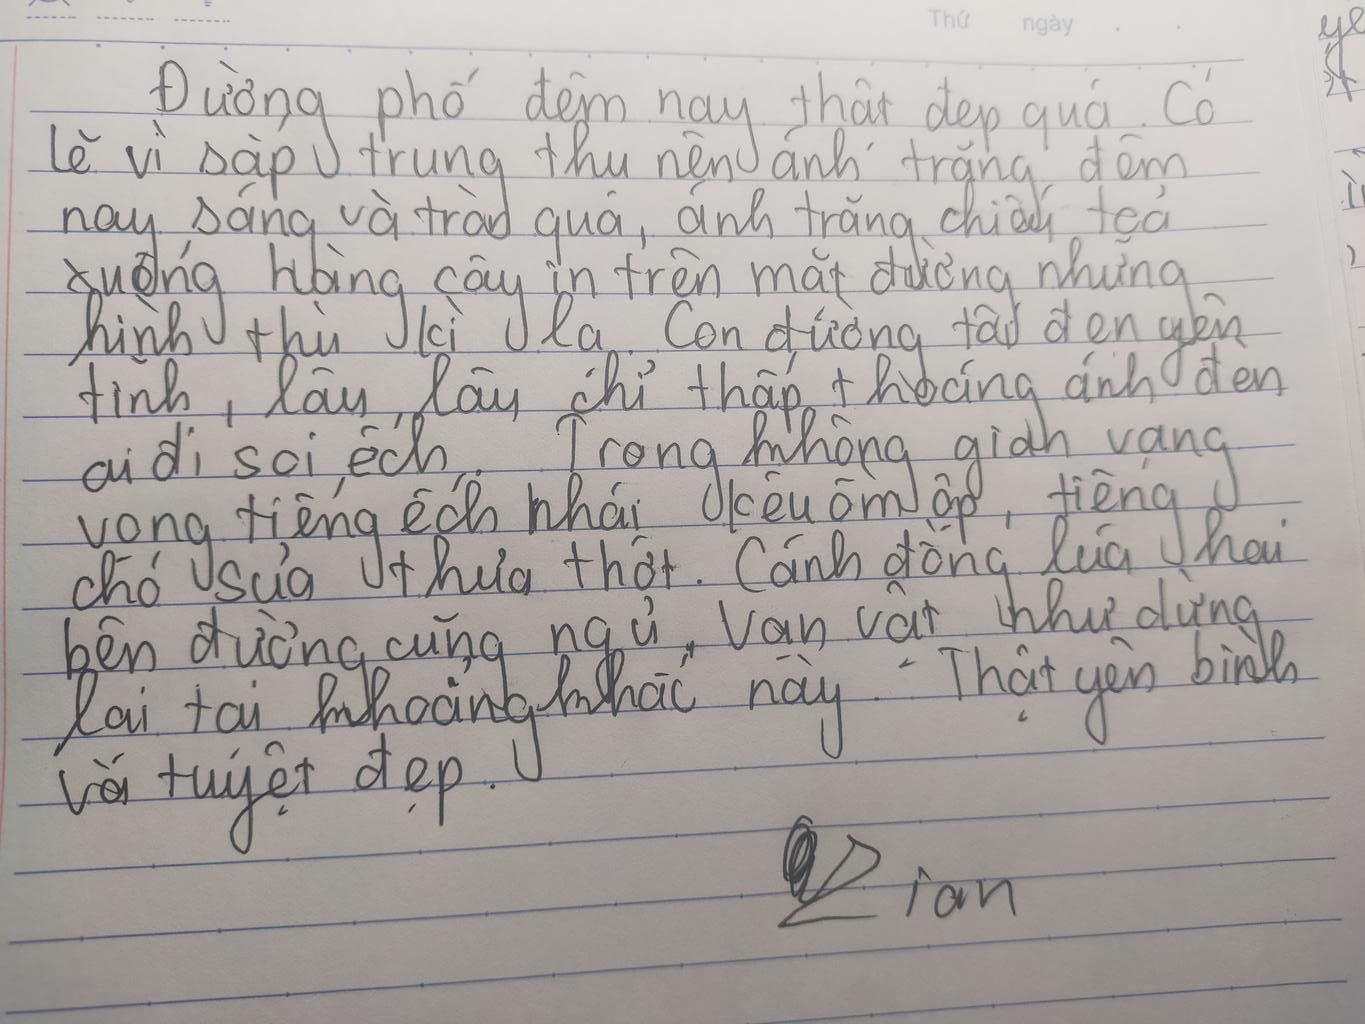 Thứ ngày
Đường phố đêm nay thật đẹp quá. Có
lẽ vì sắp trung thu nên ánh trăng đêm
nay sáng và tròn quá, ánh trăng chiếu toả
xuống hàng cây in trên mặt đường những
hình thù kì lạ. Con đường tối đen yên
tĩnh, lâu lâu chỉ thấp thoáng ánh đèn
ai đi soi ếch. Trong không gian vang
vọng tiếng ếch nhái kêu ồm ộp, tiếng
chó sủa thưa thớt. Cánh đồng lúa hai
bên đường cũng ngủ, vạn vật như dừng
lại tại khoảng khắc này. Thật yên bình
với tuyệt đẹp.